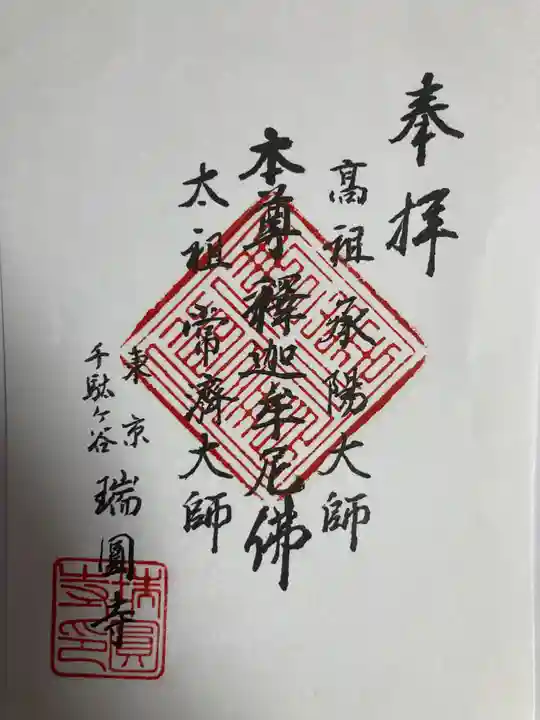 奉拝
高祖承陽大師
本尊釋迦牟尼佛
太祖常濟大師
東京
千駄ヶ谷
瑞圓寺